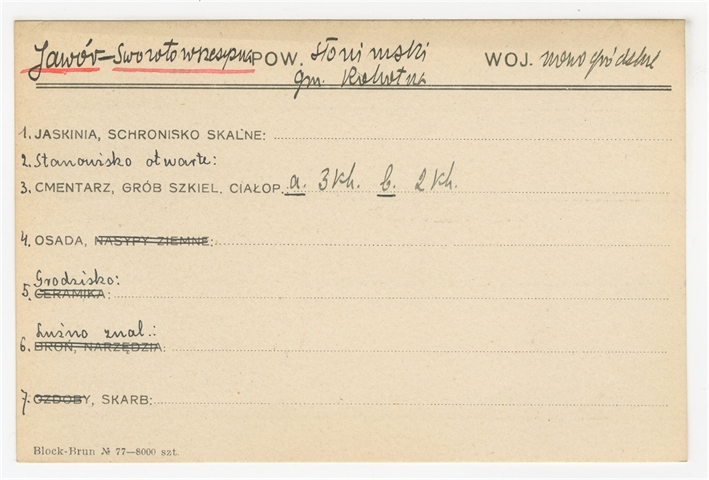 Jawór – Sworotowszczyzna POW. Słonimski WOJ. nowogródzkie
gm. Rohotna
1. JASKINIA, SCHRONISKO SKALNE:
2. Stanowisko otwarte:
3. CMENTARZ, GRÓB SZKIEL. CIAŁOP. a. 3 kh. b. 2 kh.
4. OSADA, NASYPY ZIEMNE:
Grodzisko:
5. CERAMIKA:
Luźno znal.:
6. BROŃ, NARZĘDZIA:
7. OZDOBY, SKARB:
Block-Brun № 77—8000 szt.